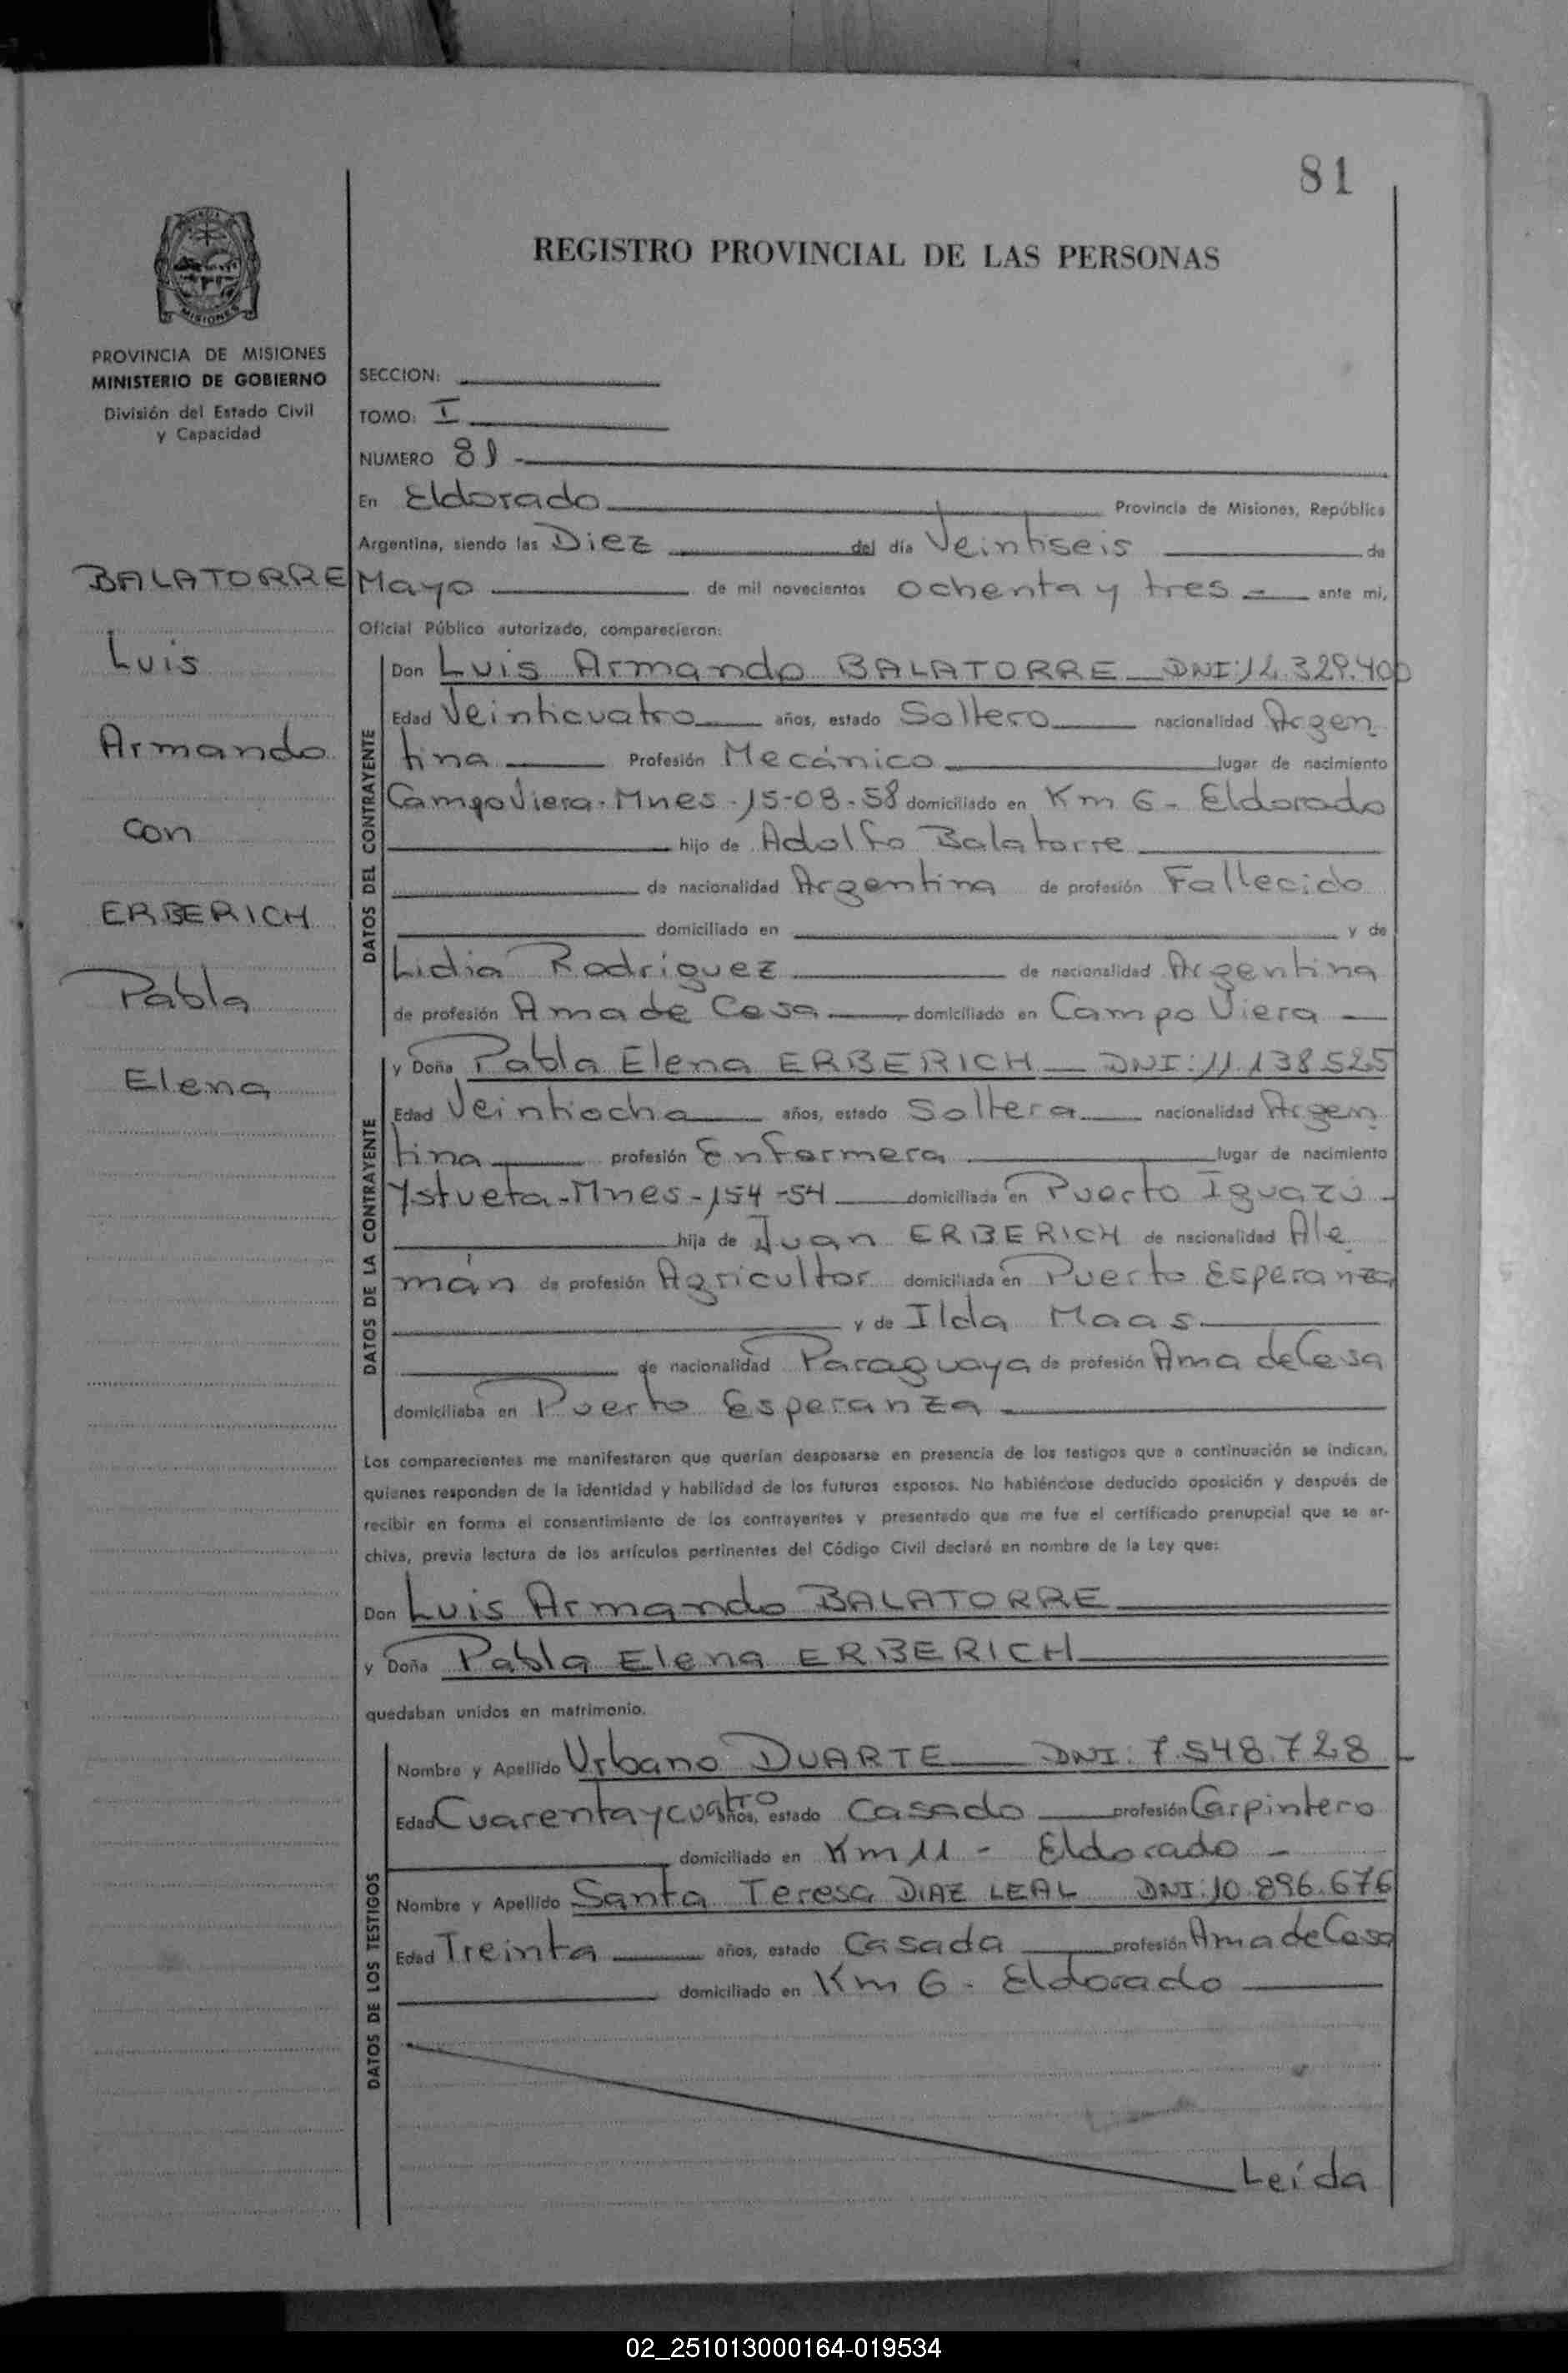 81
REGISTRO PROVINCIAL DE LAS PERSONAS
MISIONES
PROVINCIA DE MISIONES
MINISTERIO DE GOBIERNO
División del Estado Civil
y Capacidad
BALATORRE
Luis
Armando
con
ERBERICH
Pabla
Elena
SECCION:
TOMO: I
NUMERO 81
En Eldorado Provincia de Misiones, República
Argentina, siendo las Diez del día Veintiseis de
Mayo de mil novecientos ochenta y tres ante mi,
Oficial Público autorizado, comparecieron:
DATOS DEL CONTRAYENTE
Don Luis Armando BALATORRE DNI: 12.329.400
Edad Veinticuatro años, estado Soltero nacionalidad Argen
tina Profesión Mecánico lugar de nacimiento
Campo Viera-Mnes-15-08-58 domiciliado en Km 6 - Eldorado
hijo de Adolfo Balatorre
de nacionalidad Argentina de profesión Fallecido
domiciliado en y de
Lidia Rodriguez de nacionalidad Argentina
de profesión Ama de Casa domiciliado en Campo Viera
DATOS DE LA CONTRAYENTE
y Doña Pabla Elena ERBERICH DNI: 11.138.525
Edad Veintiocho años, estado Soltera nacionalidad Argen
tina profesión Enfermera lugar de nacimiento
Ystueta-Mnes-154-54 domiciliada en Puerto Iguazú
hija de Juan ERBERICH de nacionalidad Ale
mán de profesión Agricultor domiciliada en Puerto Esperanza
y de Ilda Maas
de nacionalidad Paraguaya de profesión Ama de Casa
domiciliaba en Puerto Esperanza
Los comparecientes me manifestaron que querían desposarse en presencia de los testigos que a continuación se indican,
quienes responden de la identidad y habilidad de los futuros esposos. No habiéndose deducido oposición y después de
recibir en forma el consentimiento de los contrayentes y presentado que me fue el certificado prenupcial que se ar-
chiva, previa lectura de los artículos pertinentes del Código Civil declaré en nombre de la Ley que:
Don Luis Armando BALATORRE
y Doña Pabla Elena ERBERICH
quedaban unidos en matrimonio.
DATOS DE LOS TESTIGOS
Nombre y Apellido Urbano DUARTE DNI: 7.548.728
Edad Cuarenta y cuatro años, estado Casado profesión Carpintero
domiciliado en Km 11 - Eldorado -
Nombre y Apellido Santa Teresa DIAZ LEAL DNI: 10.896.676
Edad Treinta años, estado Casada profesión Ama de Casa
domiciliado en Km 6 - Eldorado
Leída
02_251013000164-019534